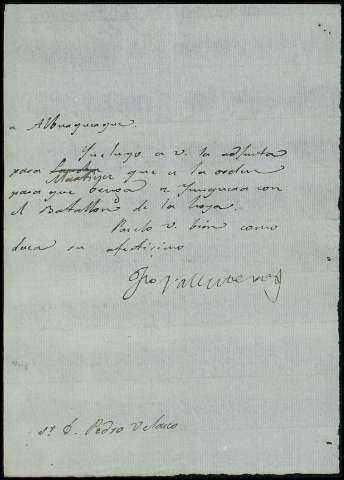 a Alburquerque.
Incluyo a v. la adjunta
para Martinez que es la orden
para que venga a Junquera con
el Batallon de la Loja.
Paselo v. bien como
desea su afectisimo
Jph Vallcuberta
Sr. D. Pedro Velasco